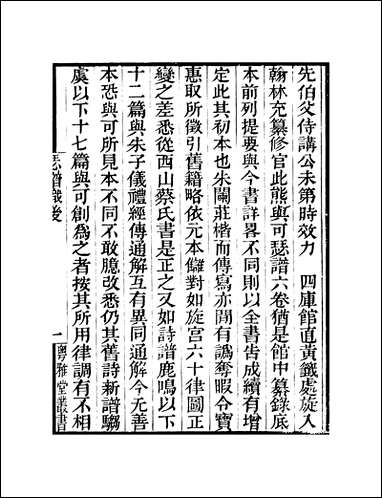 先伯父侍講公未第時效力　四庫館直黃籤處旋入
翰林充纂修官此熊與可瑟譜六卷猶是館中纂錄底
本前列提要與今書詳畧不同則以全書告成續有增
定此其初本也朱闌莊楷而傳寫亦閒有譌奪暇令寶
惠取所徵引舊籍略依元本讎對如旋宮六十律圖正
變之差悉從西山蔡氏書是正之又如詩譜鹿鳴以下
十二篇與朱子儀禮經傳通解互有異同通解今無善
本恐與可所見本不同不敢臆改悉仍其舊詩新譜騶
虞以下十七篇與可創為之者按其所用律調有不相
瑟譜識後
一
粵雅堂叢書